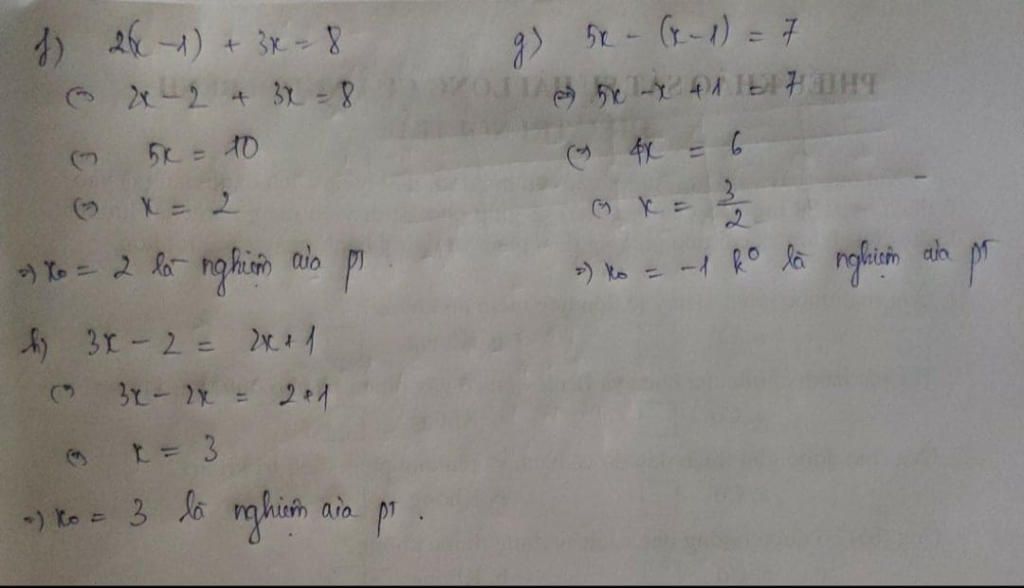 f) 2(x - 1) + 3x = 8
(=) 2x - 2 + 3x = 8
(=) 5x = 10
(=) x = 2
=) x₀ = 2 là nghiệm của pt.
g) 5x - (x - 1) = 7
(=) 5x - x + 1 = 7
(=) 4x = 6
(=) x = 3/2
=) x₀ = -1 k° là nghiệm của pt
h) 3x - 2 = 2x + 1
(=) 3x - 2x = 2 + 1
(=) x = 3
=) x₀ = 3 là nghiệm của pt.